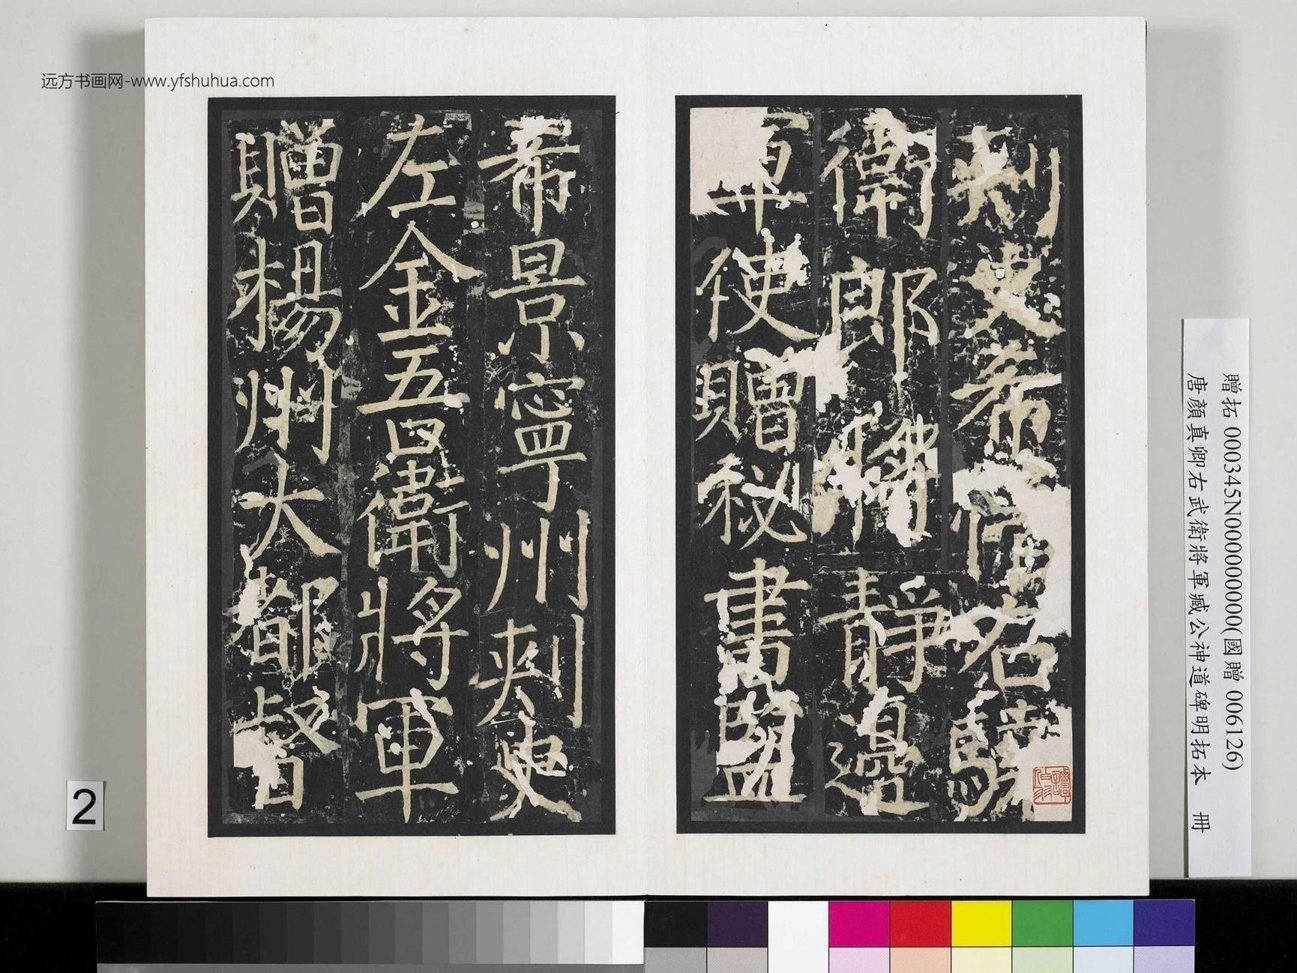 远方书画网-www.yfshuhua.com
刺史希忱右驍
衛郎將靜邊
軍使贈秘書監
希景寧州刺史
左金吾衛將軍
贈揚州大都督
贈拓 000345N000000000(國贈 006126)
唐顏真卿右武衛將軍臧公神道碑明拓本 冊
2